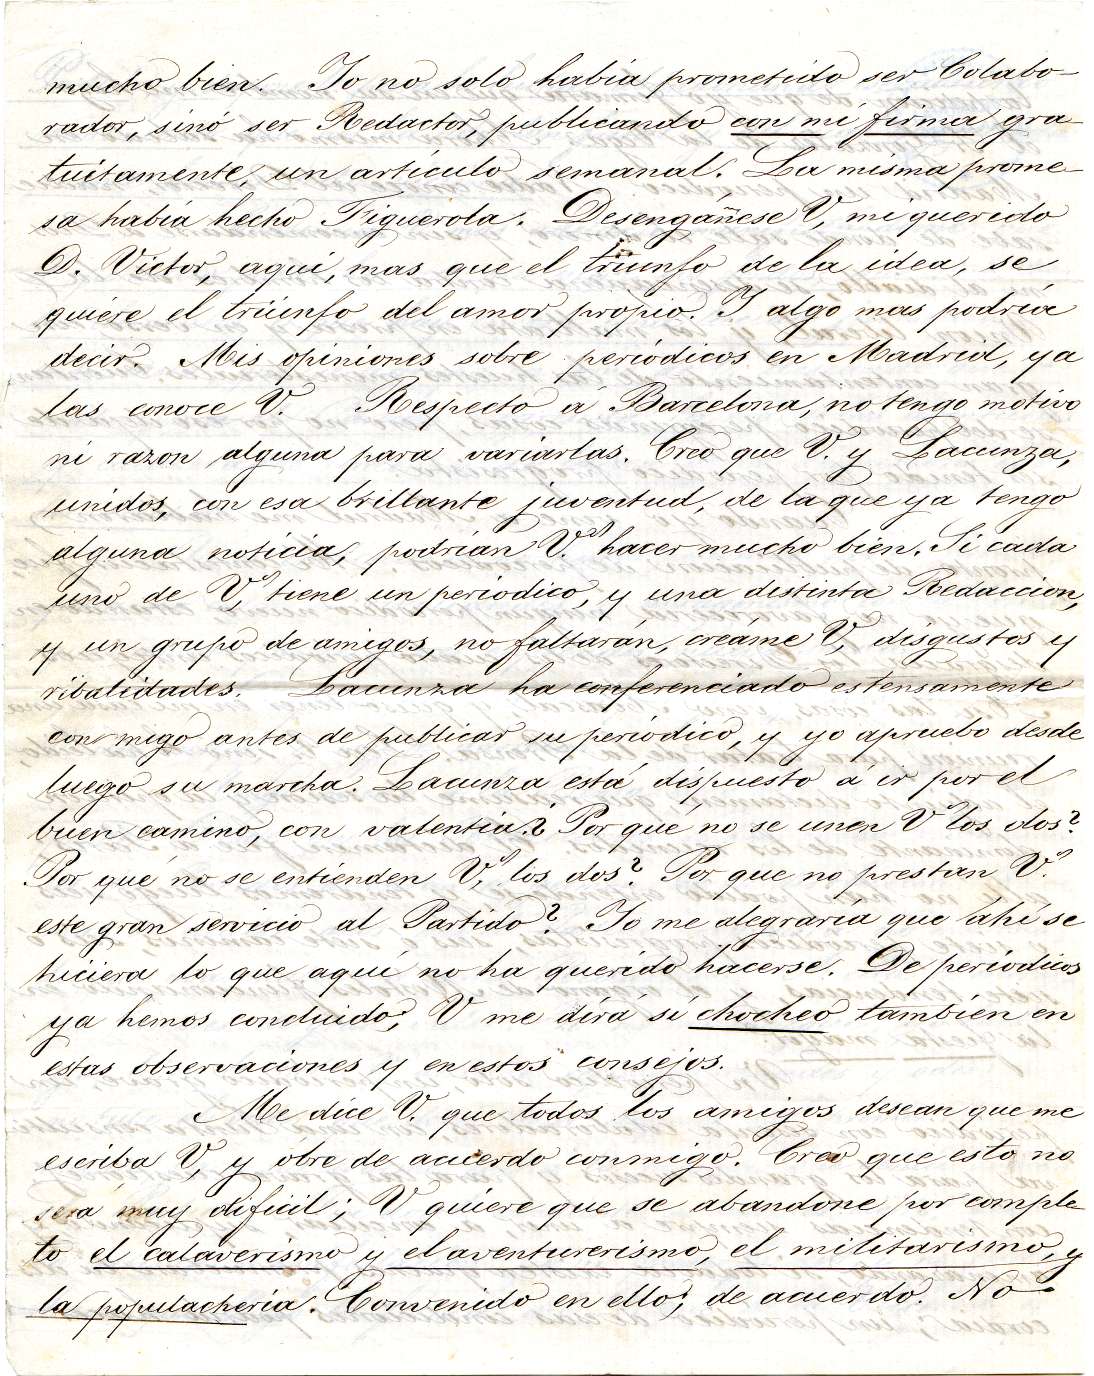 mucho bien. Yo no solo había prometido ser Colabo-
rador, sinó ser Redactor, publicando con mi firma gra-
tuitamente, un artículo semanal. La misma prome-
sa había hecho Figuerola. Desengáñese V, mi querido
D. Víctor, aquí, mas que el triunfo de la idea, se
quiere el triunfo del amor própio. Y algo mas podría
decir. Mis opiniones sobre periódicos en Madrid, ya
las conoce V. Respecto á Barcelona, no tengo motivo
ni razon alguna para variarlas. Creo que V. y Lacunza,
unidos, con esa brillante juventud, de la que ya tengo
alguna noticia, podrían V.ds hacer mucho bien. Si cada
uno de V.s tiene un periódico, y una distinta Redaccion,
y un grupo de amigos, no faltarán, créame V, disgustos y
ribalidades. Lacunza ha conferenciado estensamente
conmigo antes de publicar su periódico, y yo apruebo desde
luego su marcha. Lacunza está dispuesto á ir por el
buen camino, con valentía. ¿Por qué no se unen V.s los dos?
Por qué no se entienden V.s los dos? Por que no prestan V.s
este gran servicio al Partido? Yo me alegraría que ahí se
hiciera lo que aquí no ha querido hacerse. De periódicos
ya hemos concluido, V me dirá si chocheo también en
estas observaciones y en estos consejos.
Me dice V. que todos los amigos desean que me
escriba V, y obre de acuerdo conmigo. Creo que esto no
será muy dificil; V quiere que se abandone por comple-
to el calaverismo y el aventurerismo, el militarismo, y
la populachería. Convenido en ello, de acuerdo. No